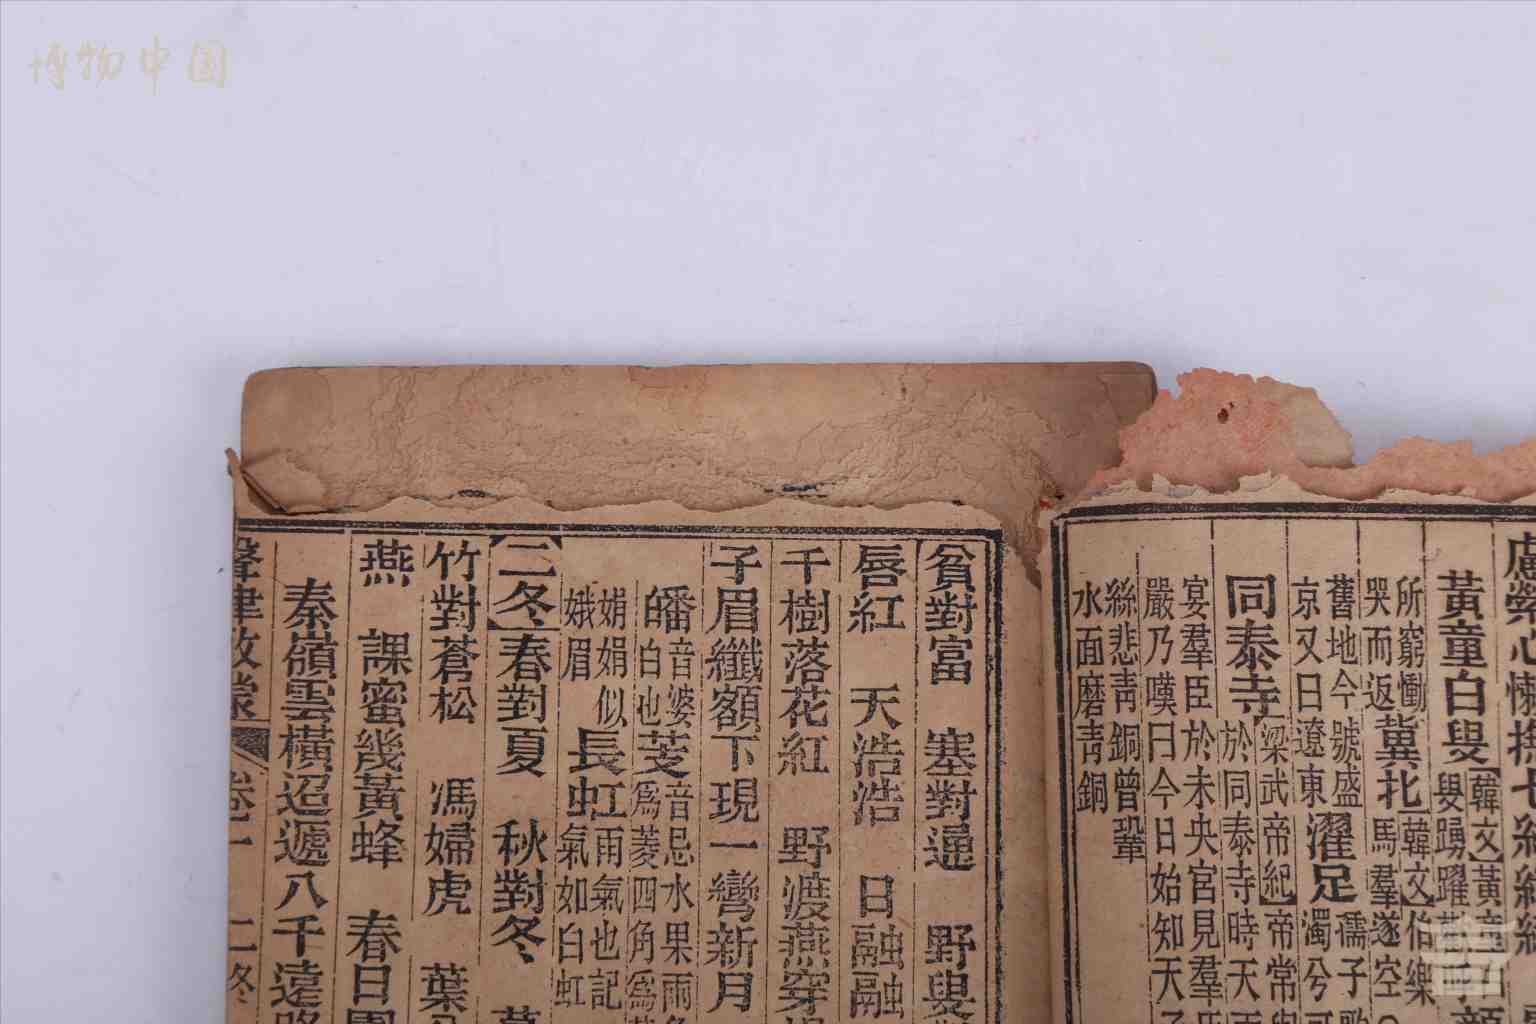 博物中国
黃童白叟
【韓文】黃童
叟踴躍歡呼
所窮慟
哭而返
冀北
【韓文】伯樂
馬羣遂空
舊地今號盛
京又曰遼東
濯足
儒子歌
濁兮可
同泰寺
【梁武帝紀】帝常
於同泰寺時天
宴羣臣於未央宮見羣
嚴乃嘆曰今日始知天
絲悲靑銅曾鞏
水面磨靑銅
貧對富 塞對通 野叟
唇紅 天浩浩 日融融
千樹落花紅 野渡燕穿
子眉纖額下現一彎新月
皤
音婆
白也
芰
音忌水果兩
爲菱四角爲
娟娟似
娥眉
長虹
雨氣也記
氣如白虹
【二冬】春對夏 秋對冬
竹對蒼松 馮婦虎 葉
燕 課蜜幾黃蜂 春日園
秦嶺雲橫迢遞八千遠路
聲律啟蒙 卷上 二冬